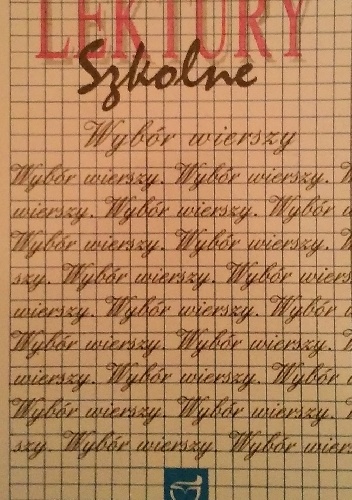 LEKTURY
Szkolne
Wybór wierszy
Wybór wierszy. Wybór wierszy.
wierszy. Wybór wierszy. Wybór
Wybór wierszy. Wybór wierszy.
szy. Wybór wierszy. Wybór wiers
wierszy. Wybór wierszy. Wybór
Wybór wierszy. Wybór wierszy.
wierszy. Wybór wierszy. Wybór
Wybór wierszy. Wybór wierszy.
szy. Wybór wierszy. Wybór wiers